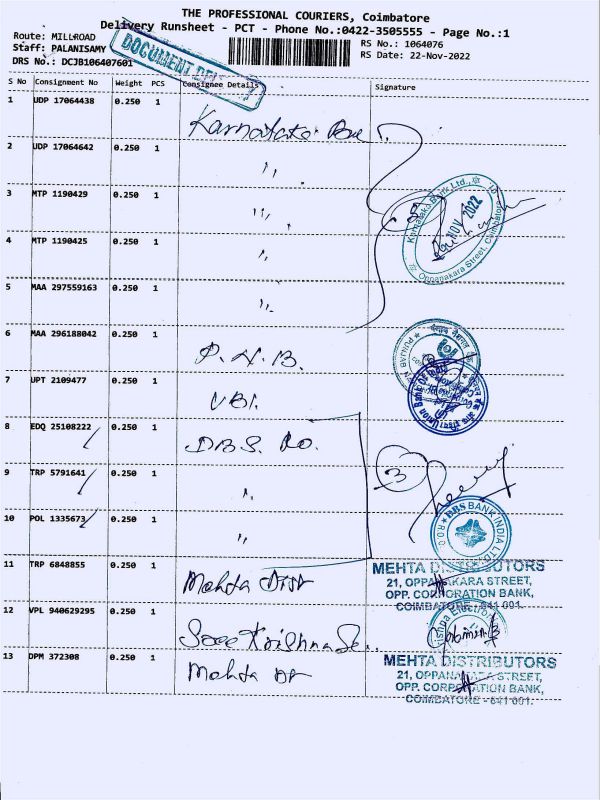 THE PROFESSIONAL COURIERS, Coimbatore
Delivery Runsheet - PCT - Phone No.:0422-3505555 - Page No.:1
Route: MILLROAD
RS No.: 1064076
Staff: PALANISAMY
RS Date: 22-Nov-2022
DRS No.: DCJB106407601
DOCUMENT
S No Consignment No Weight PCS Consignee Details Signature
1 UDP 17064438 0.250 1 Karnataka
2 UDP 17064642 0.250 1 ,,
3 MTP 1190429 0.250 1 ,,
4 MTP 1190425 0.250 1 ,,
5 MAA 297559163 0.250 1 ,,
Karnataka Bank Ltd.,
NOV 2022
Oppanakara Street, Coimbatore
6 MAA 296188042 0.250 1 P.N.B.
PUNJAB
7 UPT 2109477 0.250 1 UBI.
Union Bank Of
8 EDQ 25108222 0.250 1 D.B.S. Ro.
9 TRP 5791641 0.250 1 ,,
3
10 POL 1335673 0.250 1 ,,
DBS BANK INDIA LTD
11 TRP 6848855 0.250 1 Mehta Dist
MEHTA DISTRIBUTORS
21, OPPANAKARA STREET,
OPP. CORPORATION BANK,
COIMBATORE - 641 001.
12 VPL 940629295 0.250 1 Sree Krishna
Electro
13 DPM 372308 0.250 1 Mehta
MEHTA DISTRIBUTORS
21, OPPANAKARA STREET,
OPP. CORPORATION BANK,
COIMBATORE - 641 001.